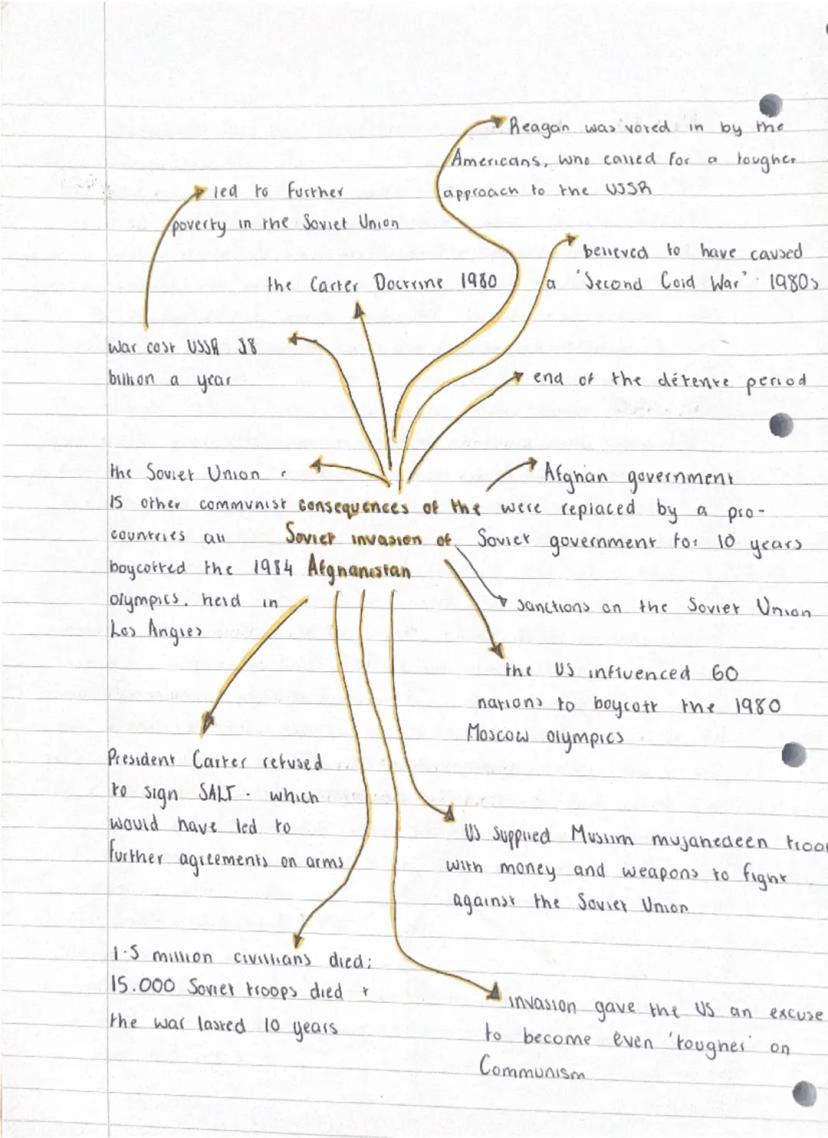 Reagan was voted in by the
Americans, who called for a tougher
approach to the USSR
led to further
poverty in the Soviet Union
believed to have caused
a 'Second Cold War' · 1980s
the Carter Doctrine 1980
war cost USSR $8
billion a year
end of the détente period
the Soviet Union +
15 other communist
countries all
boycotted the 1984
olympics, held in
Los Angles
consequences of the
Soviet invasion of
Afghanistan
Afghan government
were replaced by a pro-
Soviet government for 10 years
sanctions on the Soviet Union
the US influenced 60
nations to boycott the 1980
Moscow olympics
President Carter refused
to sign SALT - which
would have led to
further agreements on arms
US supplied Muslim mujahedeen troop
with money and weapons to fight
against the Soviet Union
1.5 million civillians died;
15.000 Soviet troops died +
the war lasted 10 years
invasion gave the US an excuse
to become even 'tougher' on
Communism